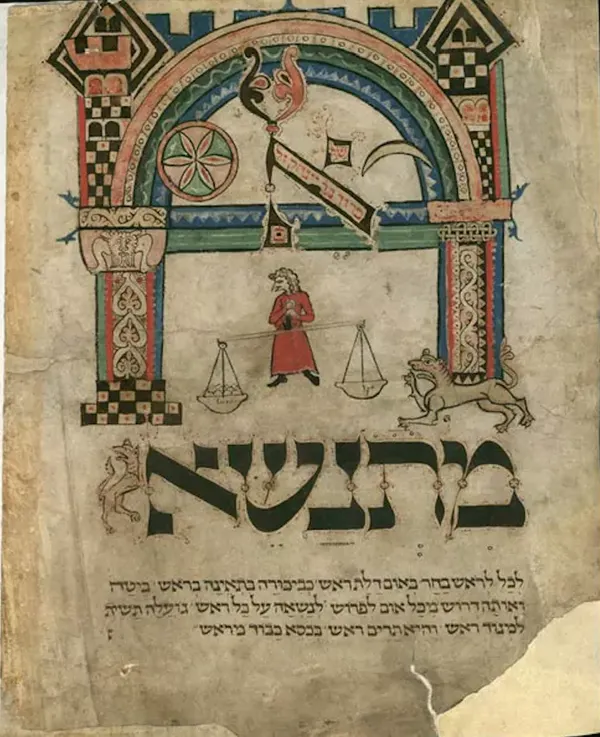 אל
מתנשא
לכל לראש בחר באום דלת ראש כביכורה בתאינה בראש
ואותה דרוש מכל אום לפרוש לנשאה על כל ראש גו עלה תשית
למנוד ראש והיא תרים ראש בכסא כבוד מראש